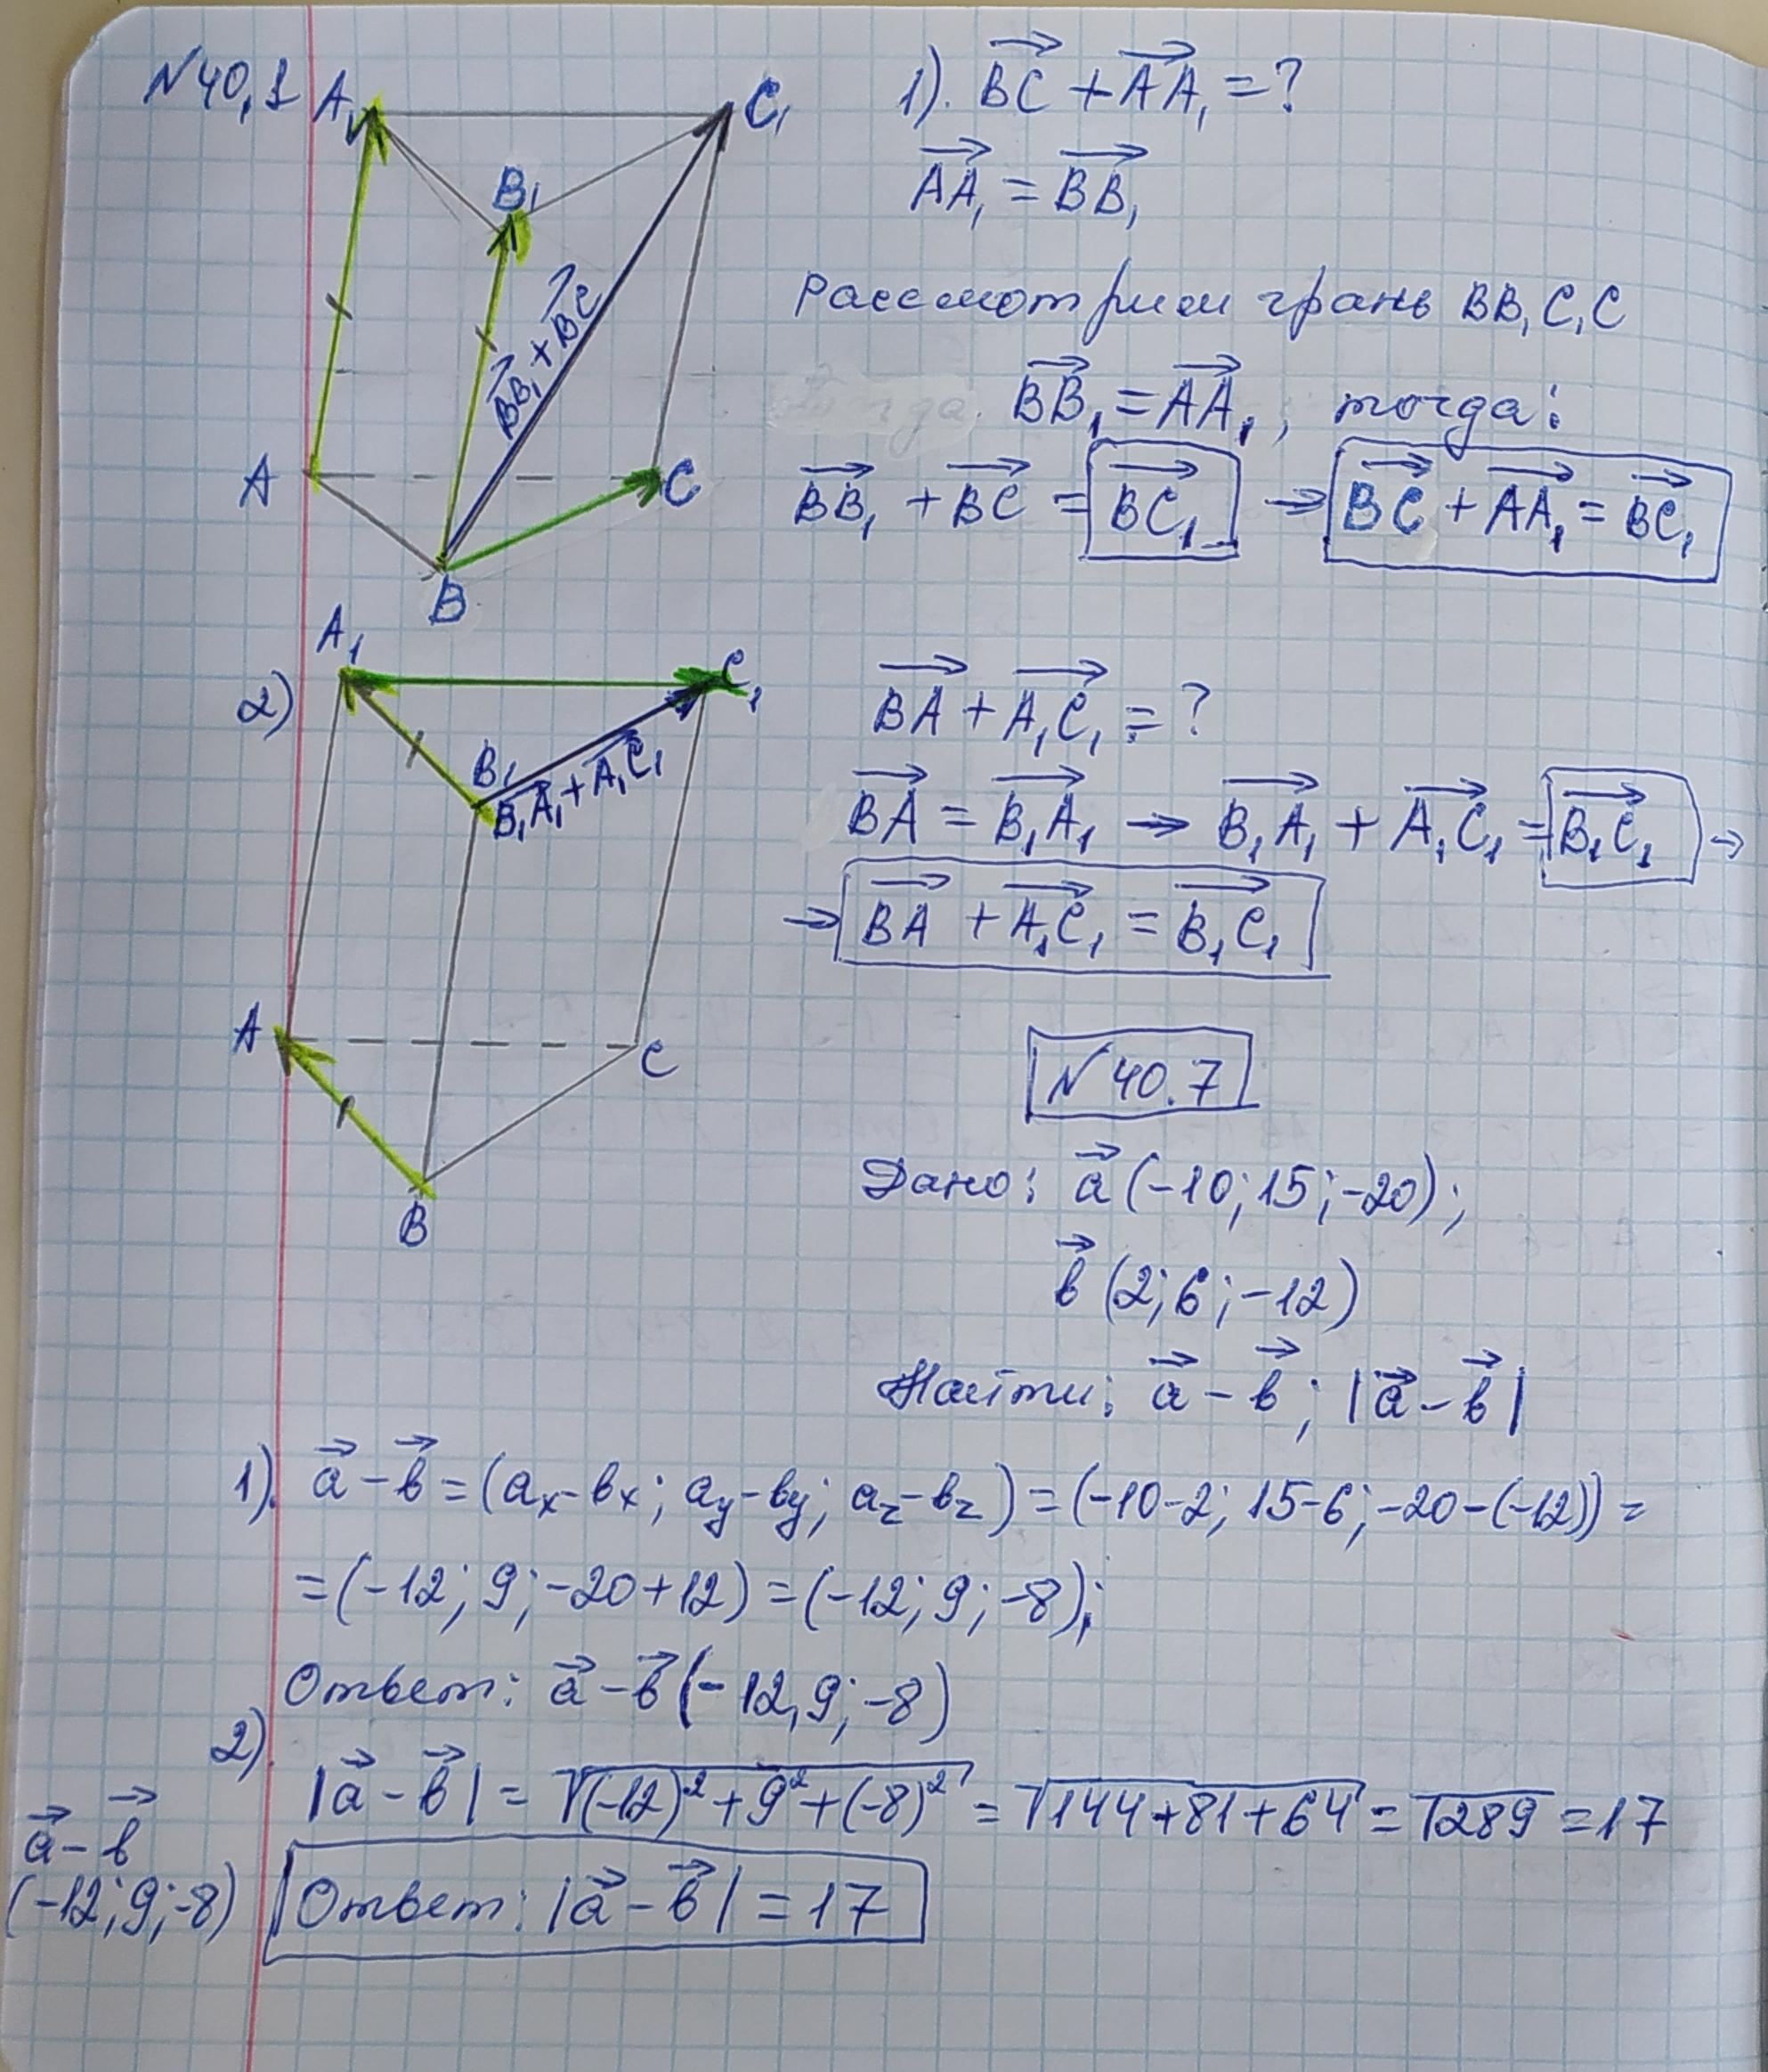 N40,1
A₁ C₁ B₁
BB₁ + BC
A C B
1). BC + AA₁ = ?
AA₁ = BB₁
Рассмотрим грань BB₁C₁C
BB₁ = AA₁, тогда:
BB₁ + BC = BC₁ → BC + AA₁ = BC₁
2)
A₁ C₁
B₁
B₁A₁ + A₁C₁
A C
B
BA + A₁C₁ = ?
BA = B₁A₁ → B₁A₁ + A₁C₁ = B₁C₁ →
→ BA + A₁C₁ = B₁C₁
N 40.7
Дано: a (-10; 15; -20);
b (2; 6; -12)
Найти: a - b; |a - b|
1). a - b = (aₓ - bₓ; aᵧ - bᵧ; a_z - b_z) = (-10-2; 15-6; -20-(-12)) =
= (-12; 9; -20+12) = (-12; 9; -8);
Ответ: a - b (-12, 9; -8)
2).
|a - b| = √(-12)² + 9² + (-8)² = √144+81+64 = √289 = 17
a - b
(-12; 9; -8)
Ответ: |a - b| = 17